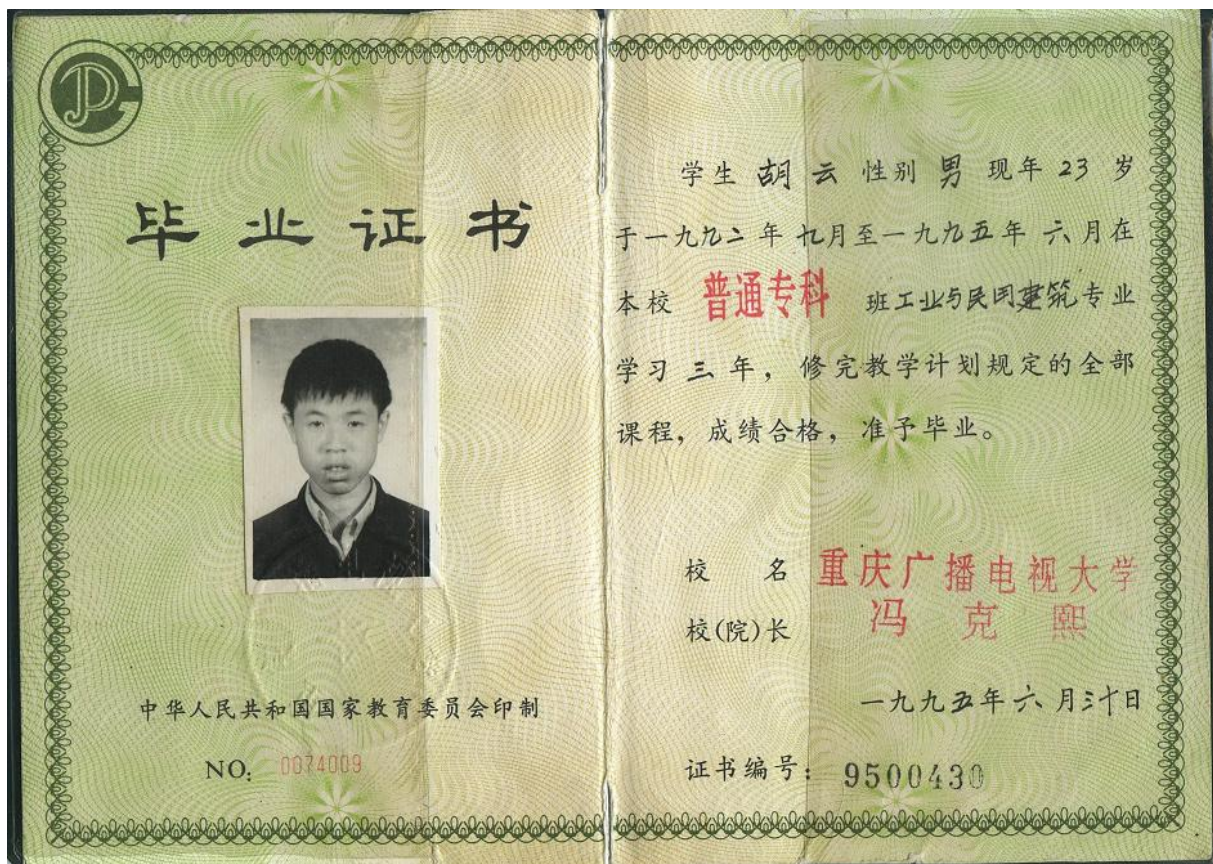 毕业证书
中华人民共和国国家教育委员会印制
NO: 0074009
学生 胡云 性别 男 现年 23 岁
于一九九二年九月至一九九五年 六月在
本校 普通专科 班工业与民用建筑专业
学习 三年，修完教学计划规定的全部
课程，成绩合格，准予毕业。
校 名 重庆广播电视大学
校(院)长 冯克熙
一九九五年六月三十日
证书编号：9500430